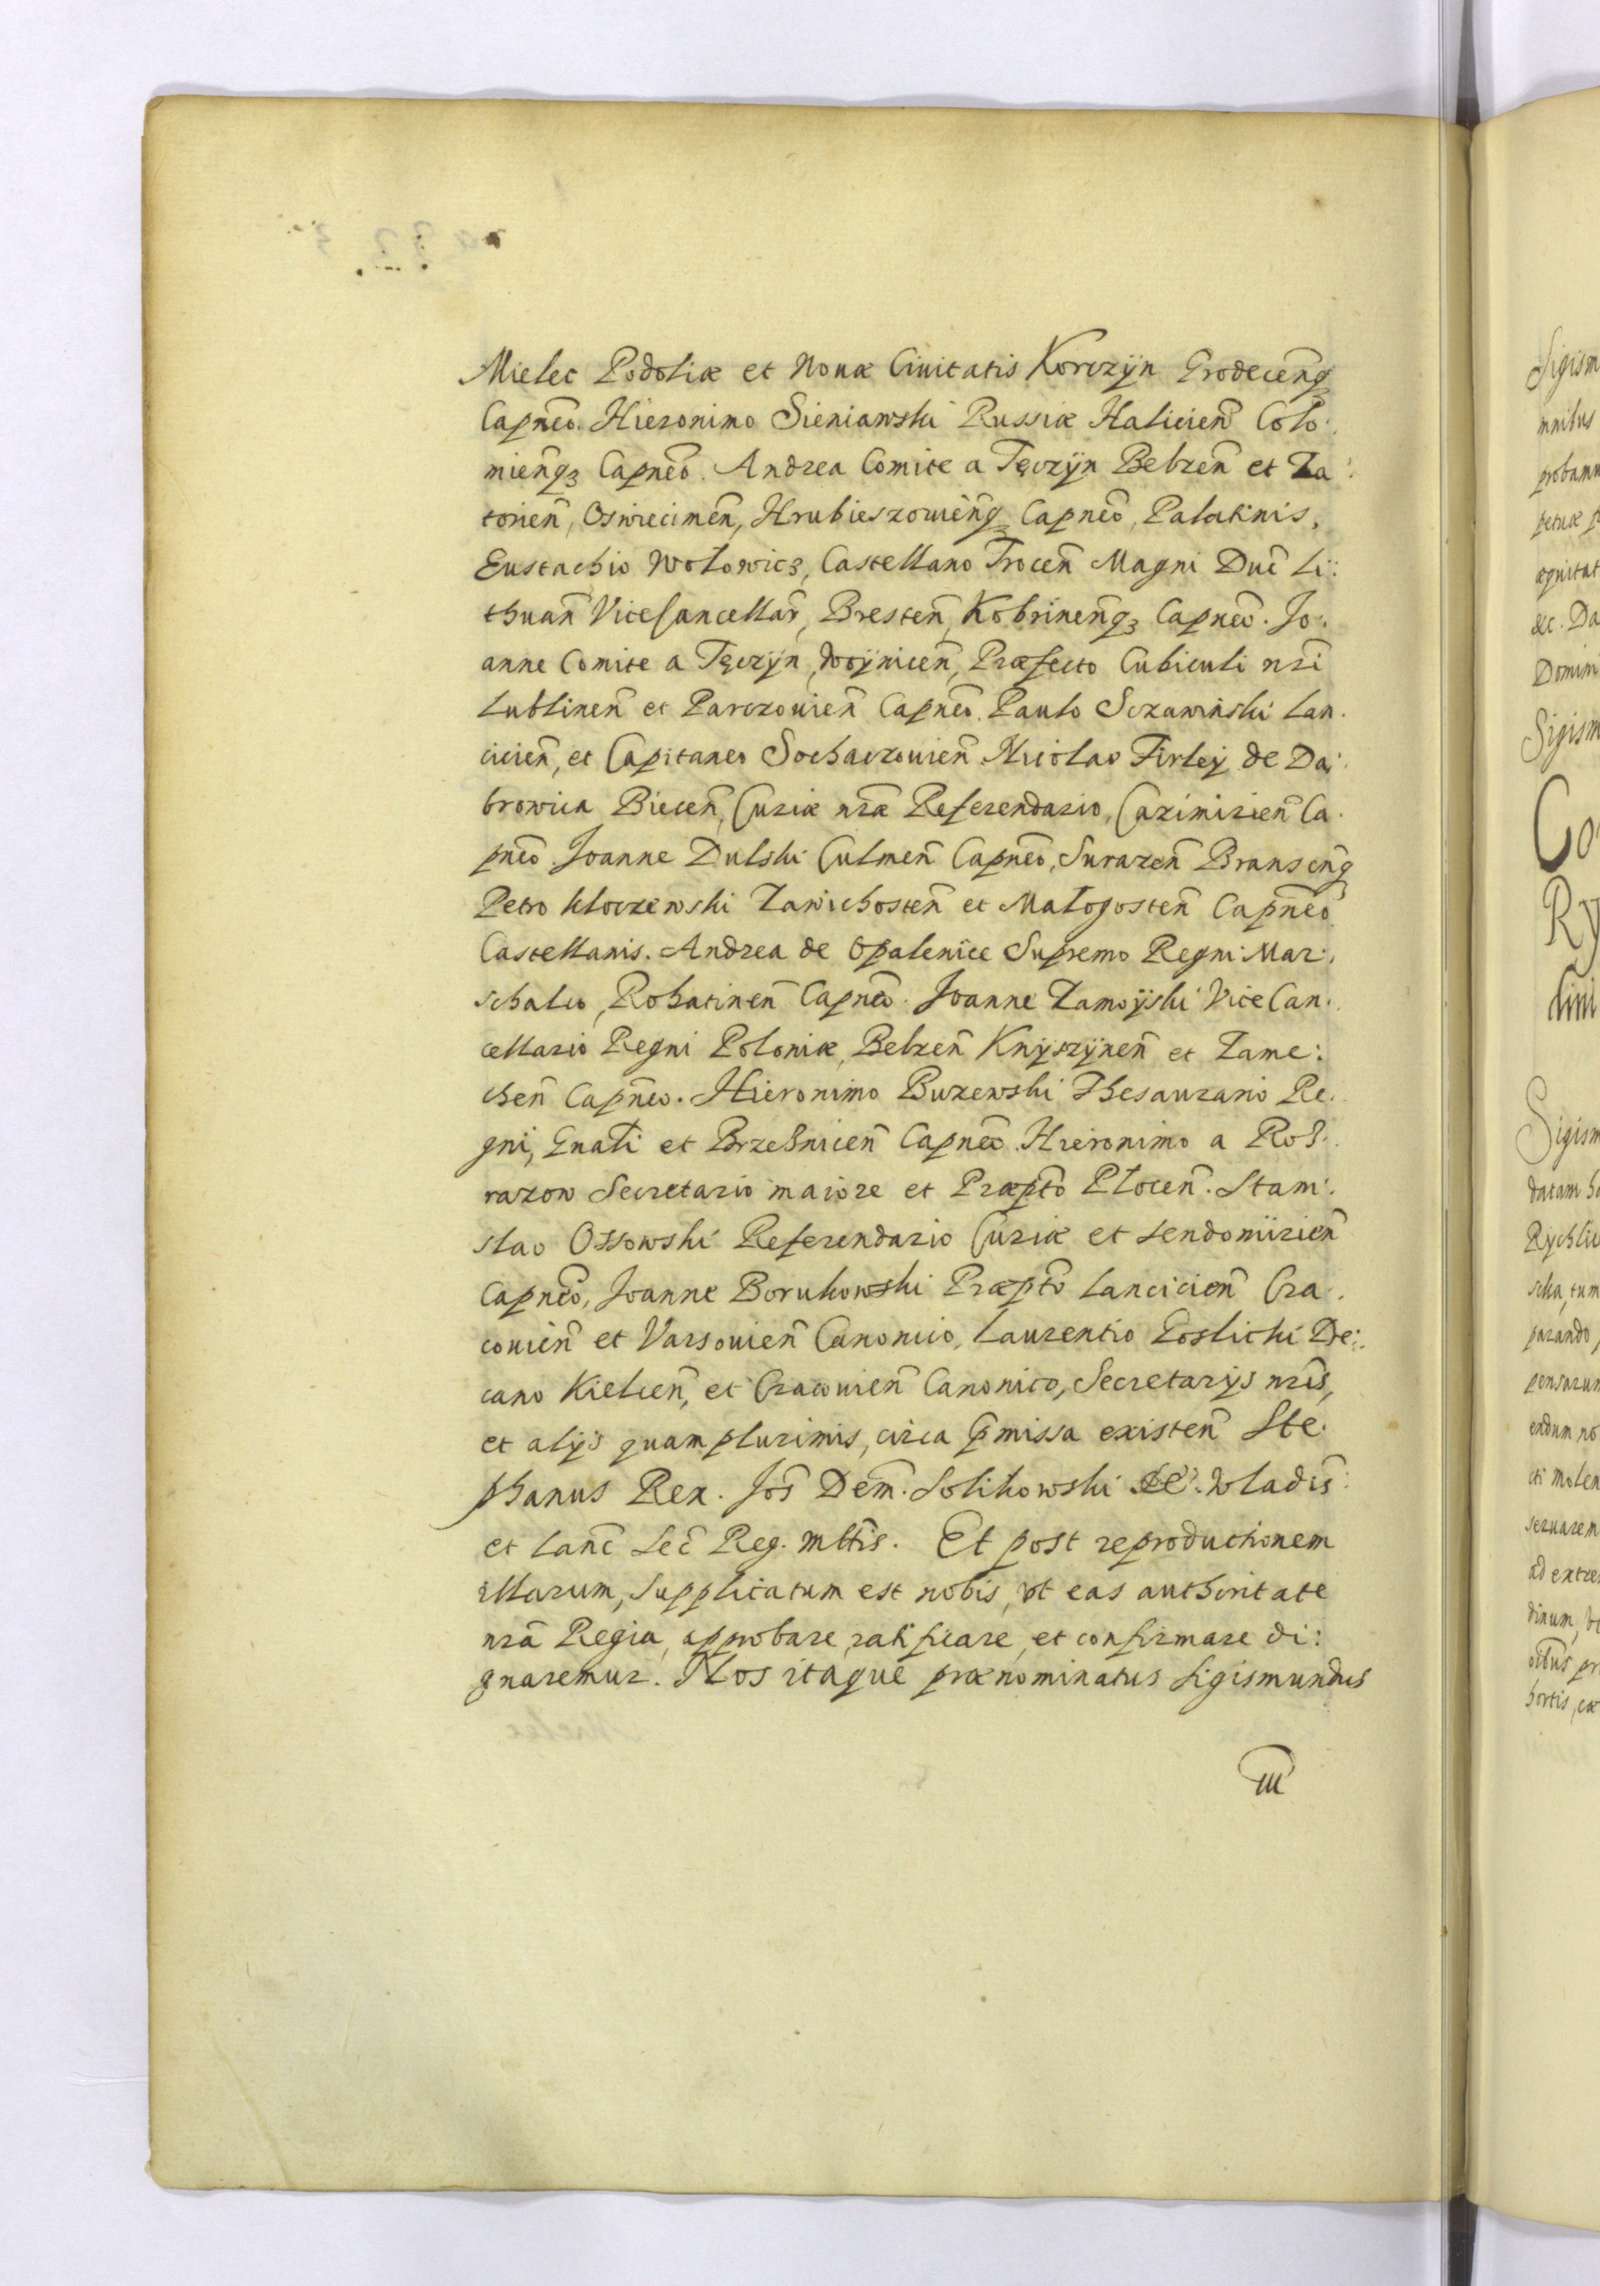 Mielec Podoliæ et Nouæ Ciuitatis Korczÿn Grodecen̄q̨
Capneō. Hieronimo Sieniawski Russiæ Halicien̄ Colo:
mien̄qȝ Capneō. Andrea Comite a Tęczÿn Belzen̄ et Za:
torien̄, Oswiecimen̄, Hrubieszouien̄q̨ Capneō, Palatinis,
Eustachio Wołowicȝ, Castellano Trocen̄ Magni Duc̄ Li:
thuan̄ ViceCancellar̄, Bresten̄, Kobrinen̄qȝ Capneō. Jo:
anne Comite a Tęczÿn, Woÿnicen̄, Præfecto Cubiculi nr̄i
Lublinen̄ et Parczouien̄ Capneō. Paulo Sczawinski Lan:
cicien̄, et Capitaneo Sochaczouien̄ Nicolao Firley de Da:
browica Biecen̄, Curiæ nr̄æ Referendario, Cazimirien̄ Ca:
pneō Joanne Dulski Culmen̄ Capneō, Surazen̄ Bransen̄q̨
Petro Kłoczewski Zawichosten̄ et Małogosten̄ Capneō
Castellanis. Andrea de Opalenice Supremo Regni Mar:
schalco, Rohatinen̄ Capneō. Joanne Zamoÿski ViceCan:
cellario Regni Poloniæ, Belzen̄ Knÿszÿnen̄ et Zame:
chen̄ Capneō. Hieronimo Buzewski Thesaurario Re:
gni, Gnati et Brzesnicen̄ Capneō. Hieronimo a Roz:
razow Secretario maiore et Præpt̄o Płocen̄. Stani:
slao Ossowski Referendario Curiæ et Sendomirien̄
Capneō, Joanne Borukowski Præpt̄o Lancicien̄ Cra:
couien̄ et Varsouien̄ Canonico, Laurentio Goslicki De:
cano Kielcen̄, et Cracouien̄ Canonico, Secretarÿs nr̄is,
et alÿs quam plurimis, circa p̄missa existen̄ Ste:
phanus Rex. Jos̄ Dem̄. Solikowski Sc̄. Wladis̄:
et Lanc̄ Sec̄ Reg. Mttīs. Et post reproductionem
illarum, supplicatum est nobis, vt eas authoritate
nr̄a Regia, approbare, ratificare, et confirmare di:
gnaremur. Nos itaque prænominatus Sigismundus
III